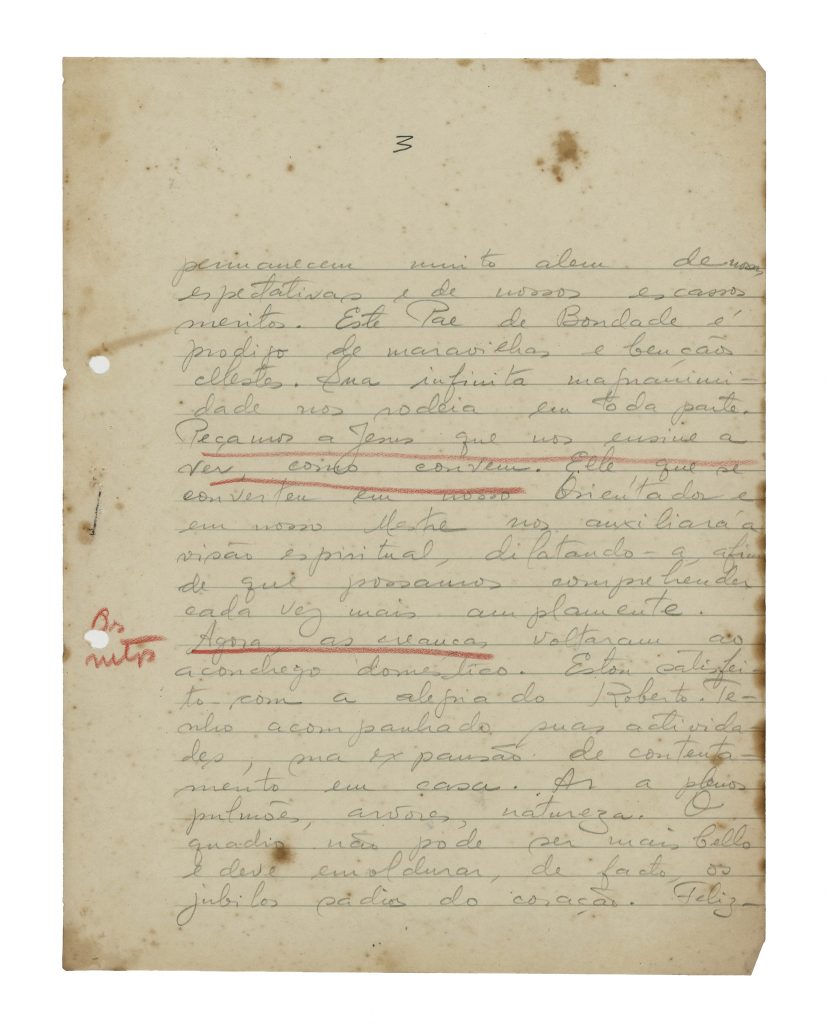 3
permanecem muito alem de nossas
espectativas e de nossos escassos
meritos. Este Pae de Bondade é
prodigo de maravilhas e bençãos
celestes. Sua infinita magnanimi-
dade nos rodeia em toda parte.
Peçamos a Jesus que nos ensine a
ver, como convem. Elle que se
converteu em nosso Orientador e
em nosso Mestre nos auxiliará a
visão espiritual, dilatando-a, afim
de que possamos comprehender
cada vez mais amplamente.
Agora, as creanças voltaram ao
aconchego domestico. Estou satisfei-
to com a alegria do Roberto. Te-
nho acompanhado suas activida-
des, sua expansão de contenta-
mento em casa. Ar a plenos
pulmões, arvores, natureza. O
quadro não pode ser mais bello
e deve emoldurar, de facto, os
jubilos sadios do coração. Feliz-
Os
netos